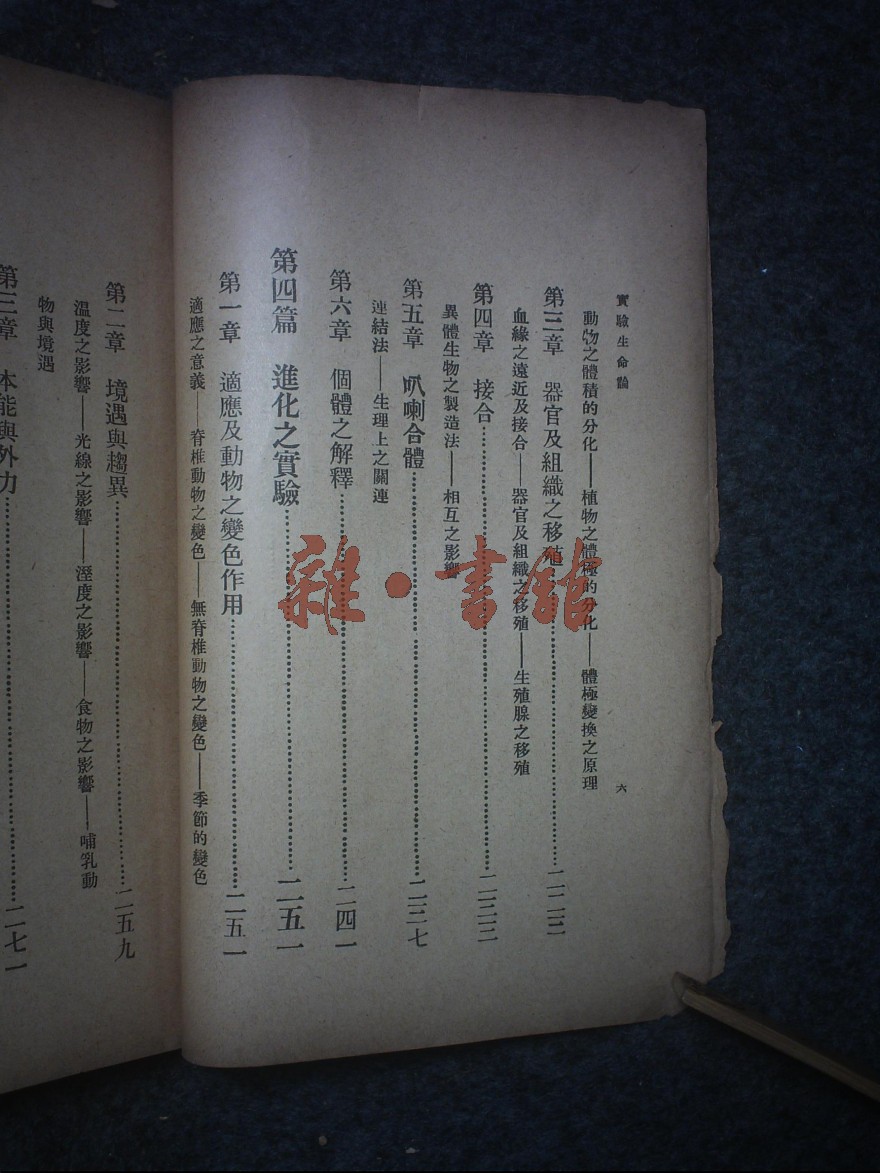 實驗生命論
六
動物之體積的分化——植物之體極的分化——體極變換之原理
第三章 器官及組織之移殖
血緣之遠近及接合——器官及組織之移殖——生殖腺之移殖
第四章 接合
異體生物之製造法——相互之影響
第五章 叭喇合體
連結法——生理上之關連
第六章 個體之解釋……二四一
第四篇 進化之實驗……二五一
第一章 適應及動物之變色作用……二五一
適應之意義——脊椎動物之變色——無脊椎動物之變色——季節的變色
第二章 境遇與趨異……二五九
溫度之影響——光線之影響——溼度之影響——食物之影響——哺乳動
物與境遇
第三章 本能與外力……二七一
雜·書館